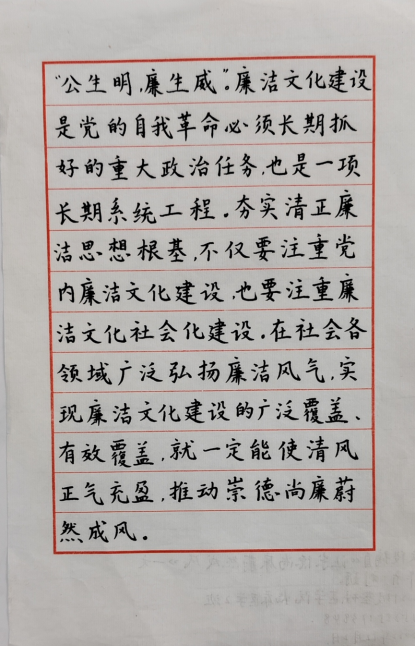 “公生明,廉生威”。廉洁文化建设
是党的自我革命必须长期抓
好的重大政治任务,也是一项
长期系统工程。夯实清正廉
洁思想根基,不仅要注重党
内廉洁文化建设,也要注重廉
洁文化社会化建设。在社会各
领域广泛弘扬廉洁风气,实
现廉洁文化建设的广泛覆盖、
有效覆盖,就一定能使清风
正气充盈,推动崇德尚廉蔚
然成风。